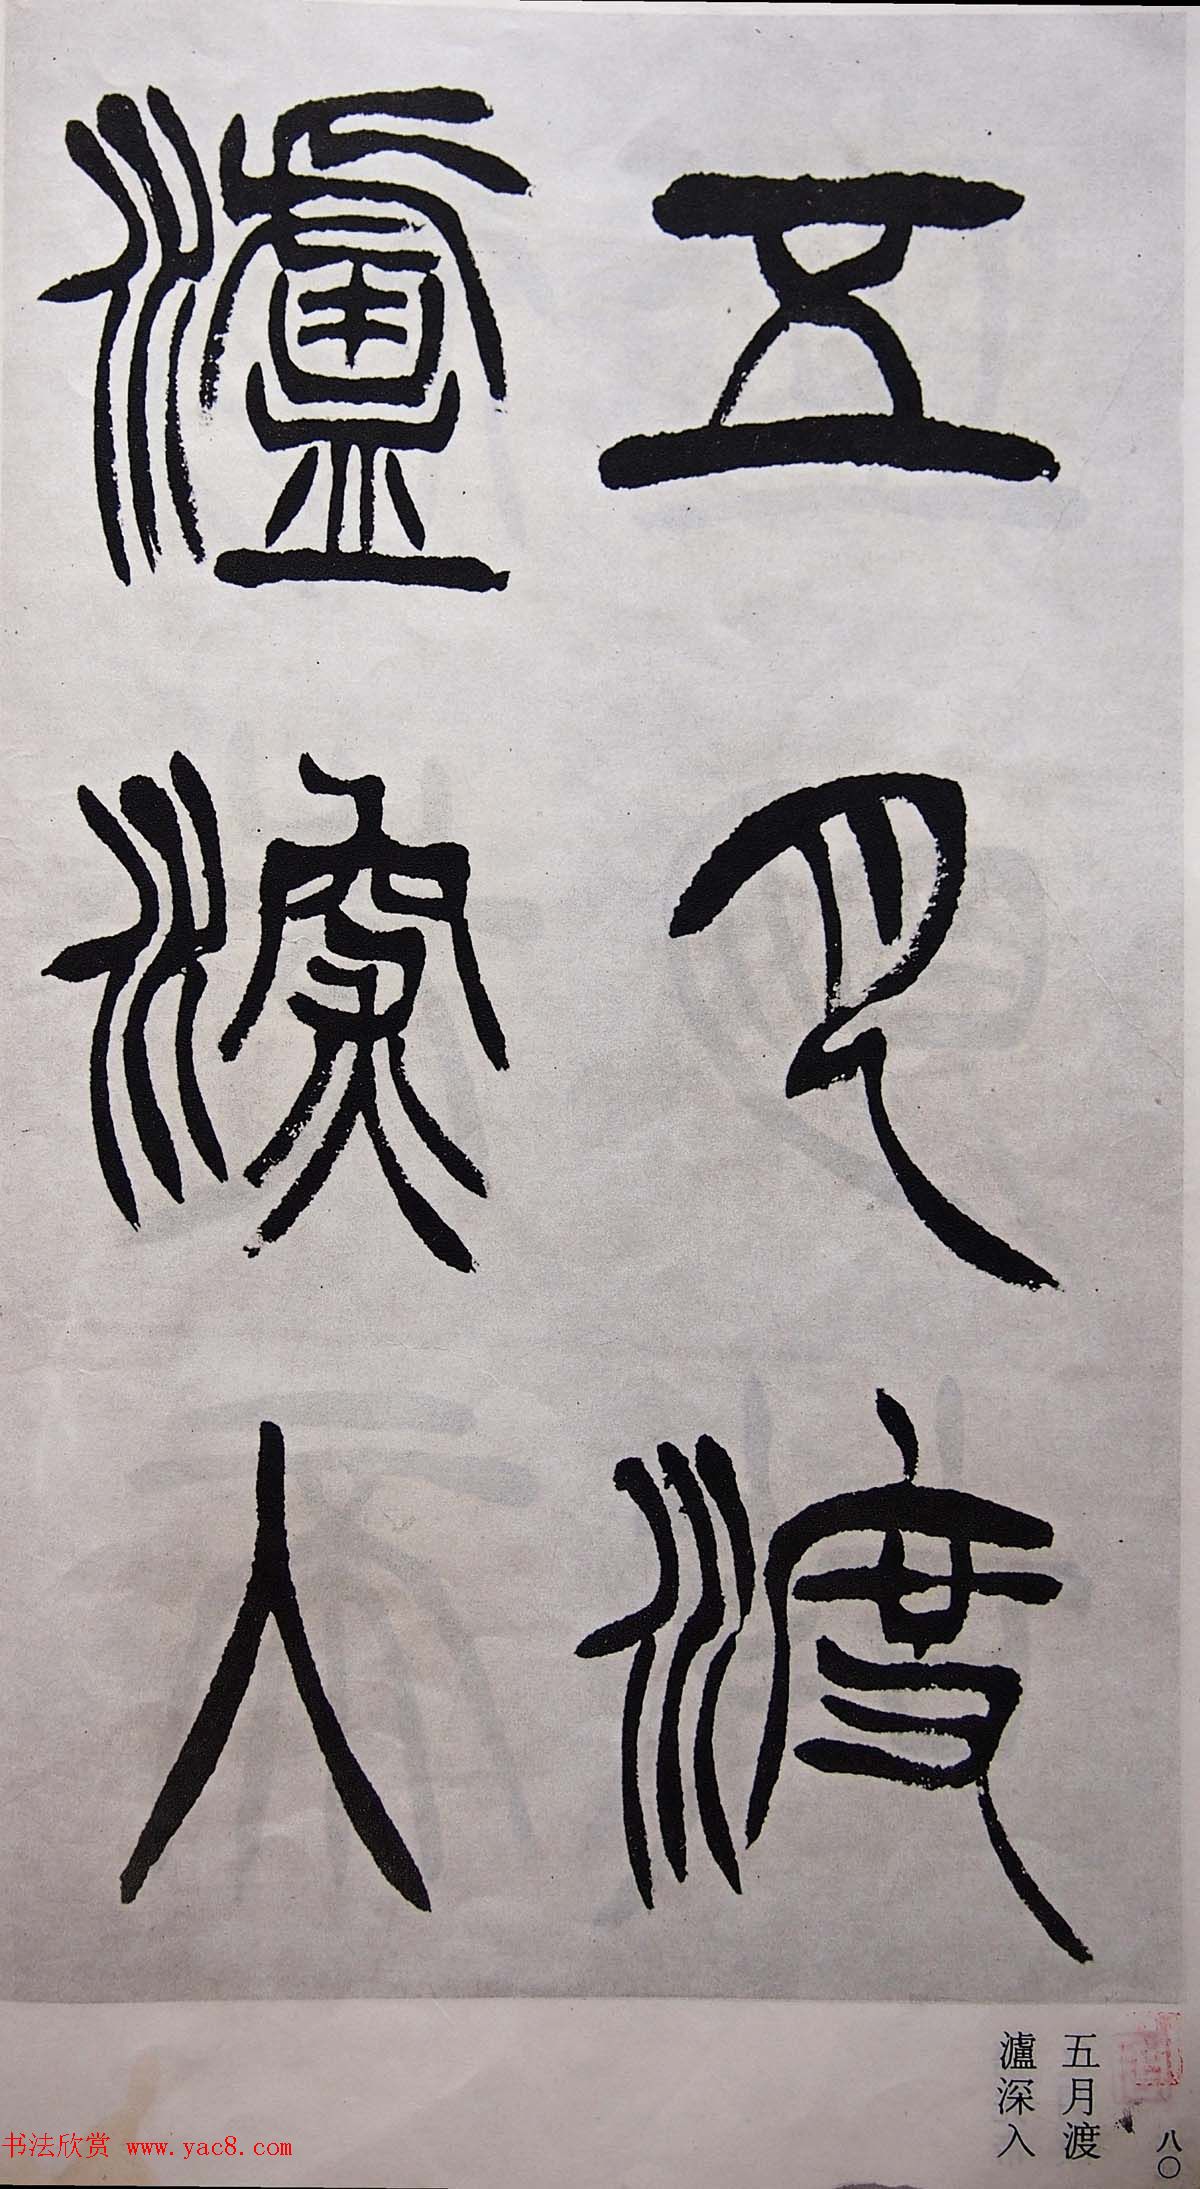 五月渡
瀘深入
五月渡
瀘深入
八〇
书法欣赏 www.yac8.com